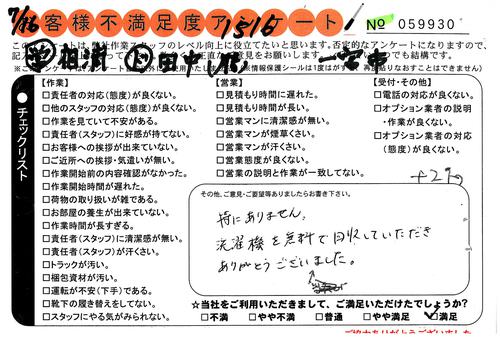 7/26
お客様不満足度アンケート!
1515
No 059930
レベル向上に役立てたいと思います。否定的なアンケートになりますので、
一宮市
チェックリスト
【作業】
□責任者の対応(態度)が良くない。
□他のスタッフの対応(態度)が良くない。
□作業を見ていて不安がある。
□責任者(スタッフ)に好感が持てない。
□お客様への挨拶が出来ていない。
□ご近所への挨拶・気遣いが無い。
□作業開始前の内容確認がなかった。
□作業開始時間が遅れた。
□荷物の取り扱いが雑である。
□お部屋の養生が出来ていない。
□作業時間が長すぎる。
□責任者(スタッフ)に清潔感が無い。
□責任者(スタッフ)が汗くさい。
□トラックが汚い。
□梱包資材が汚い。
□運転が不安(下手)である。
□靴下の履き替えをしてない。
□スタッフにやる気がみられない。
【営業】
□見積もり時間に遅れた。
□見積もり時間が長い。
□営業マンに清潔感が無い。
□営業マンが煙草くさい。
□営業マンが汗くさい。
□営業態度が良くない。
□営業の説明と作業が一致してない。
【受付・その他】
□電話の対応が良くない。
□オプション業者の説明
・作業が良くない。
□オプション業者の対応
(態度)が良くない。
その他、ご意見・ご要望等ありましたらお書き下さい。
特にありません。
洗濯機を無料で回収していただき
ありがとうございました。
☆当社をご利用いただきまして、ご満足いただけたでしょうか?
□不満 □やや不満 □普通 □やや満足 □満足
ご協力ありがとうございました